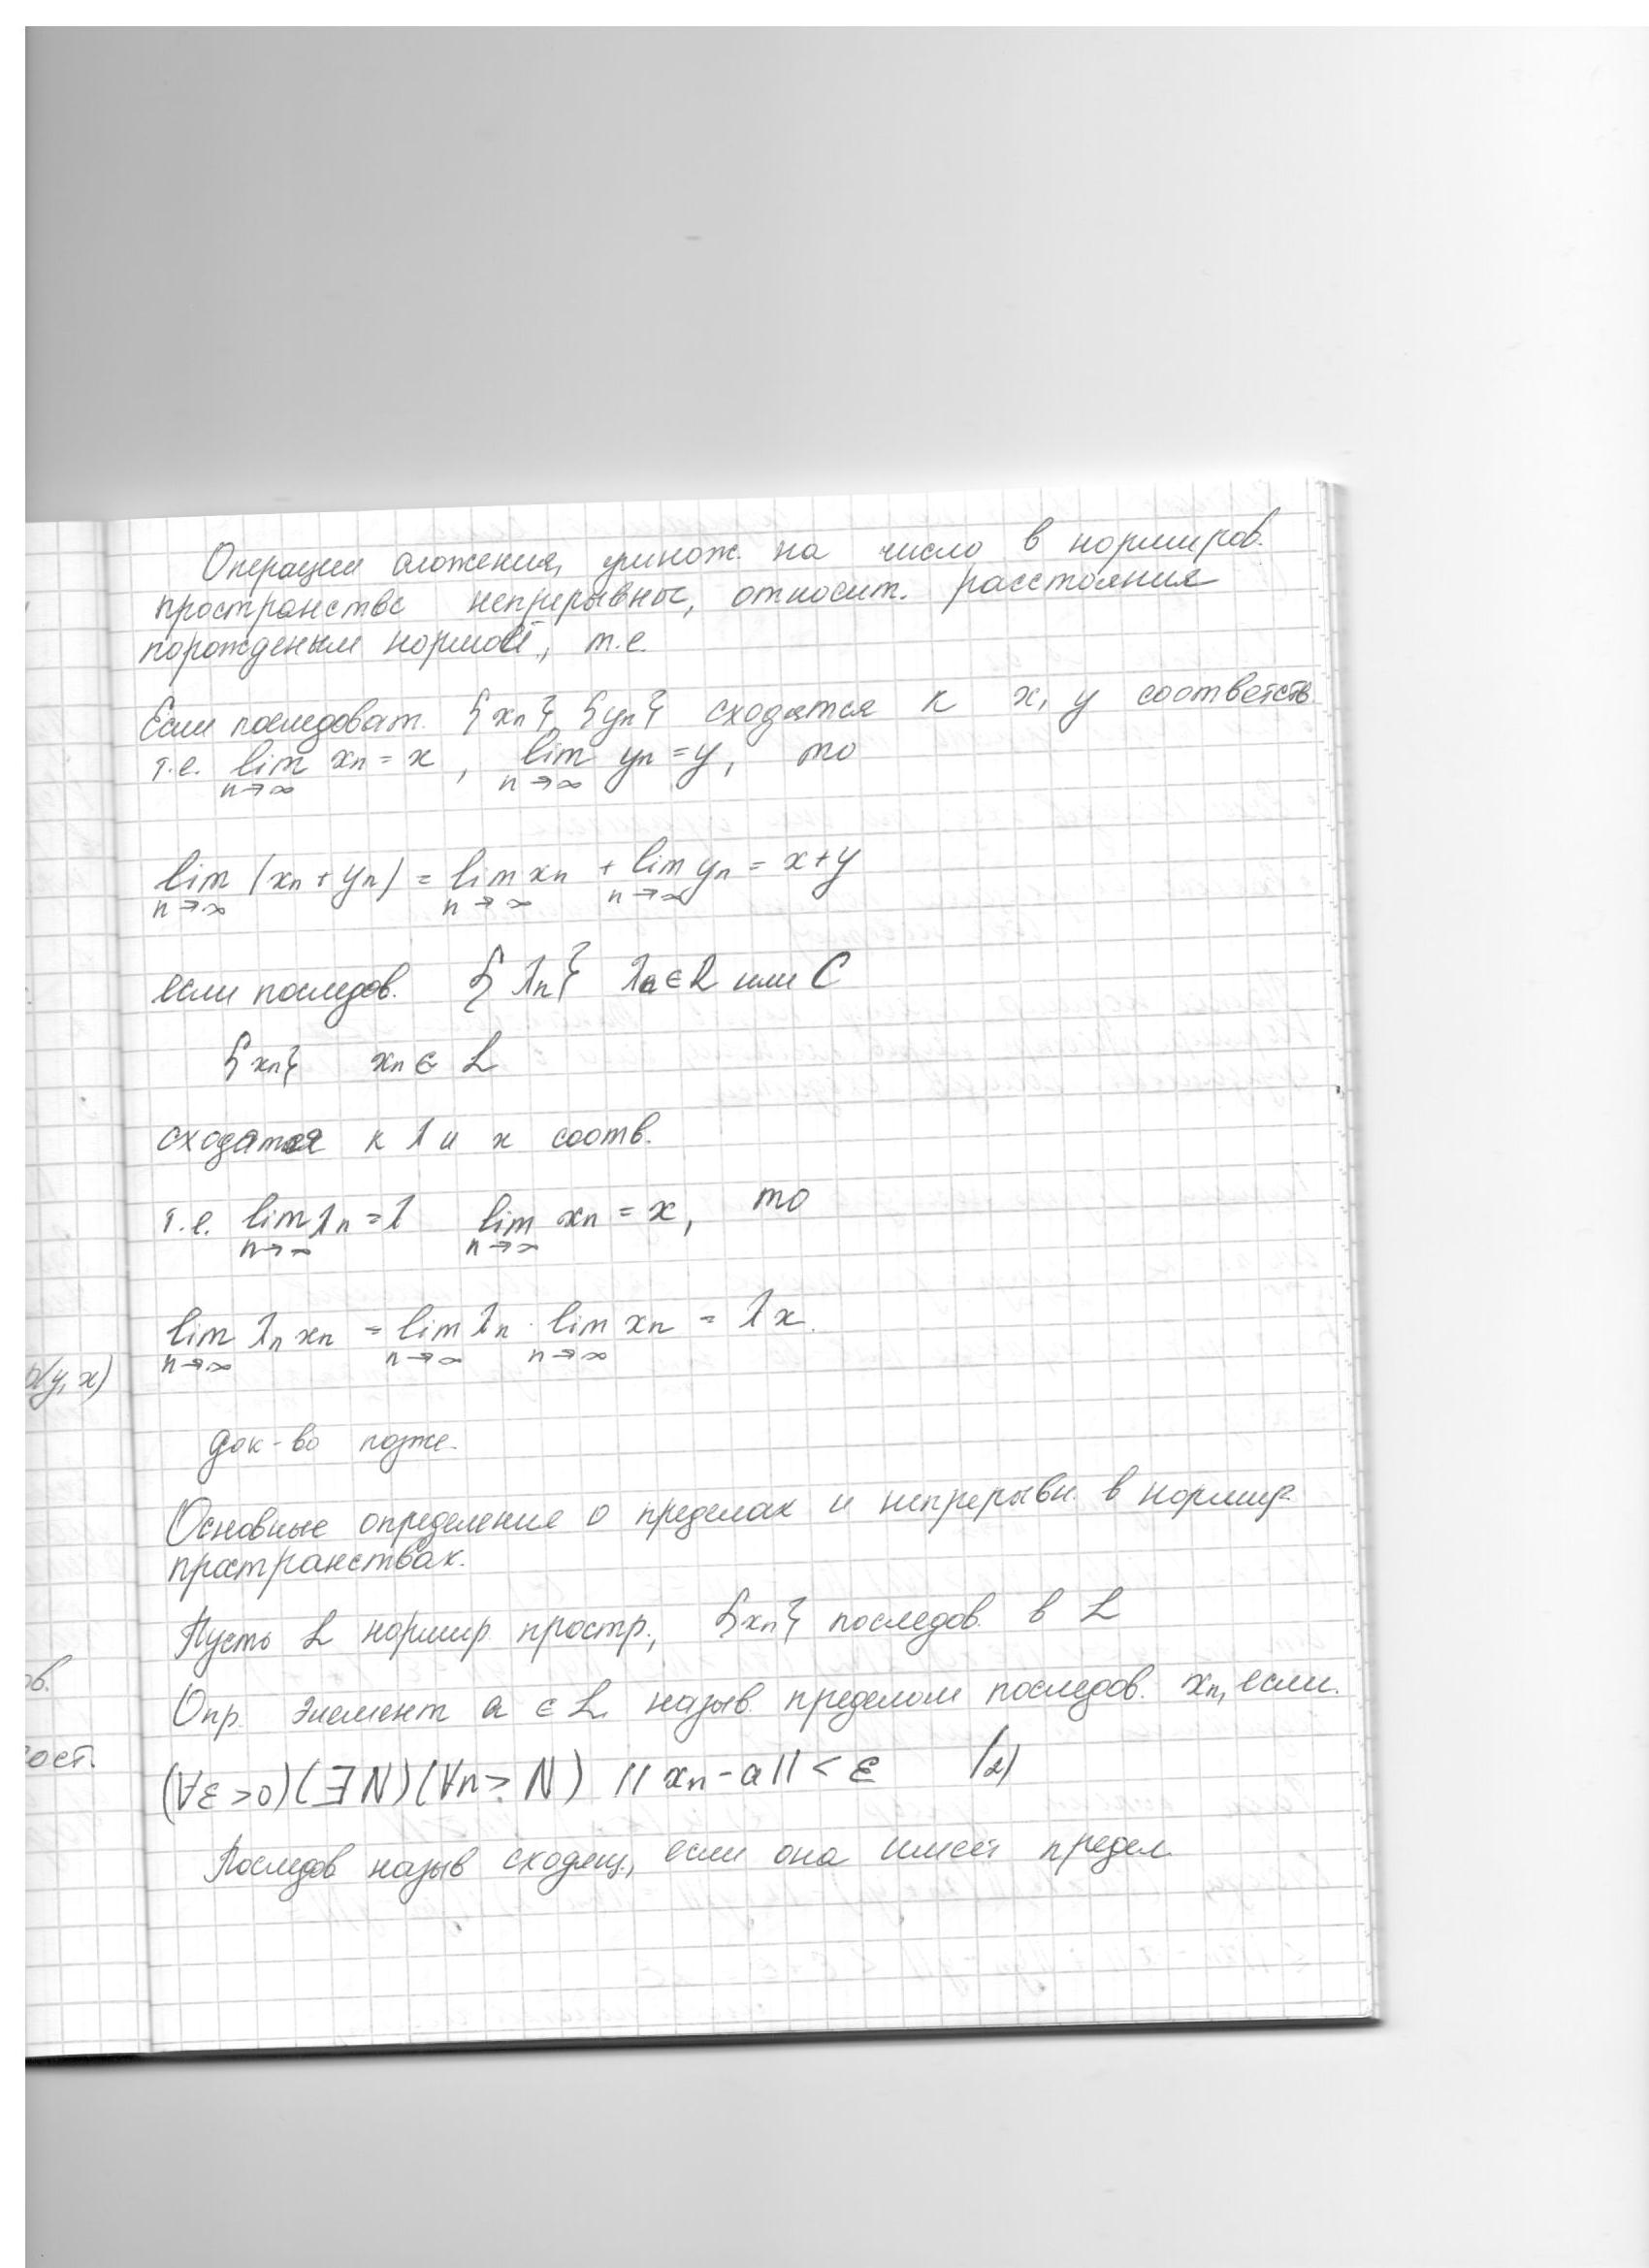 Операции сложения, умнож. на число в нормиров.
пространстве непрерывны, относит. расстояния
порожденым нормой, т.е.
Если последоват. {xn} {yn} сходятся к x, y соответств
т.е. lim xn = x, lim yn = y, то
n→∞ n→∞
lim (xn + yn) = lim xn + lim yn = x+y
n→∞ n→∞ n→∞
если последов. {λn} λn ∈ R или C
{xn} xn ∈ L
сходятся к λ и x соотв.
т.е. lim λn = λ lim xn = x, то
n→∞ n→∞
lim λn xn = lim λn · lim xn = λx.
n→∞ n→∞ n→∞
p(y, x)
док-во позже.
Основные определения о пределах и непрерывн. в нормир.
пространствах.
Пусть L нормир. простр., {xn} последов. в L
ов.
Опр. Элемент a ∈ L назыв. пределом последов. xn, если.
ост.
(∀ε>0)(∃N)(∀n≥N) ||xn - a|| < ε (2)
Последов назыв сходящ., если она имеет предел.